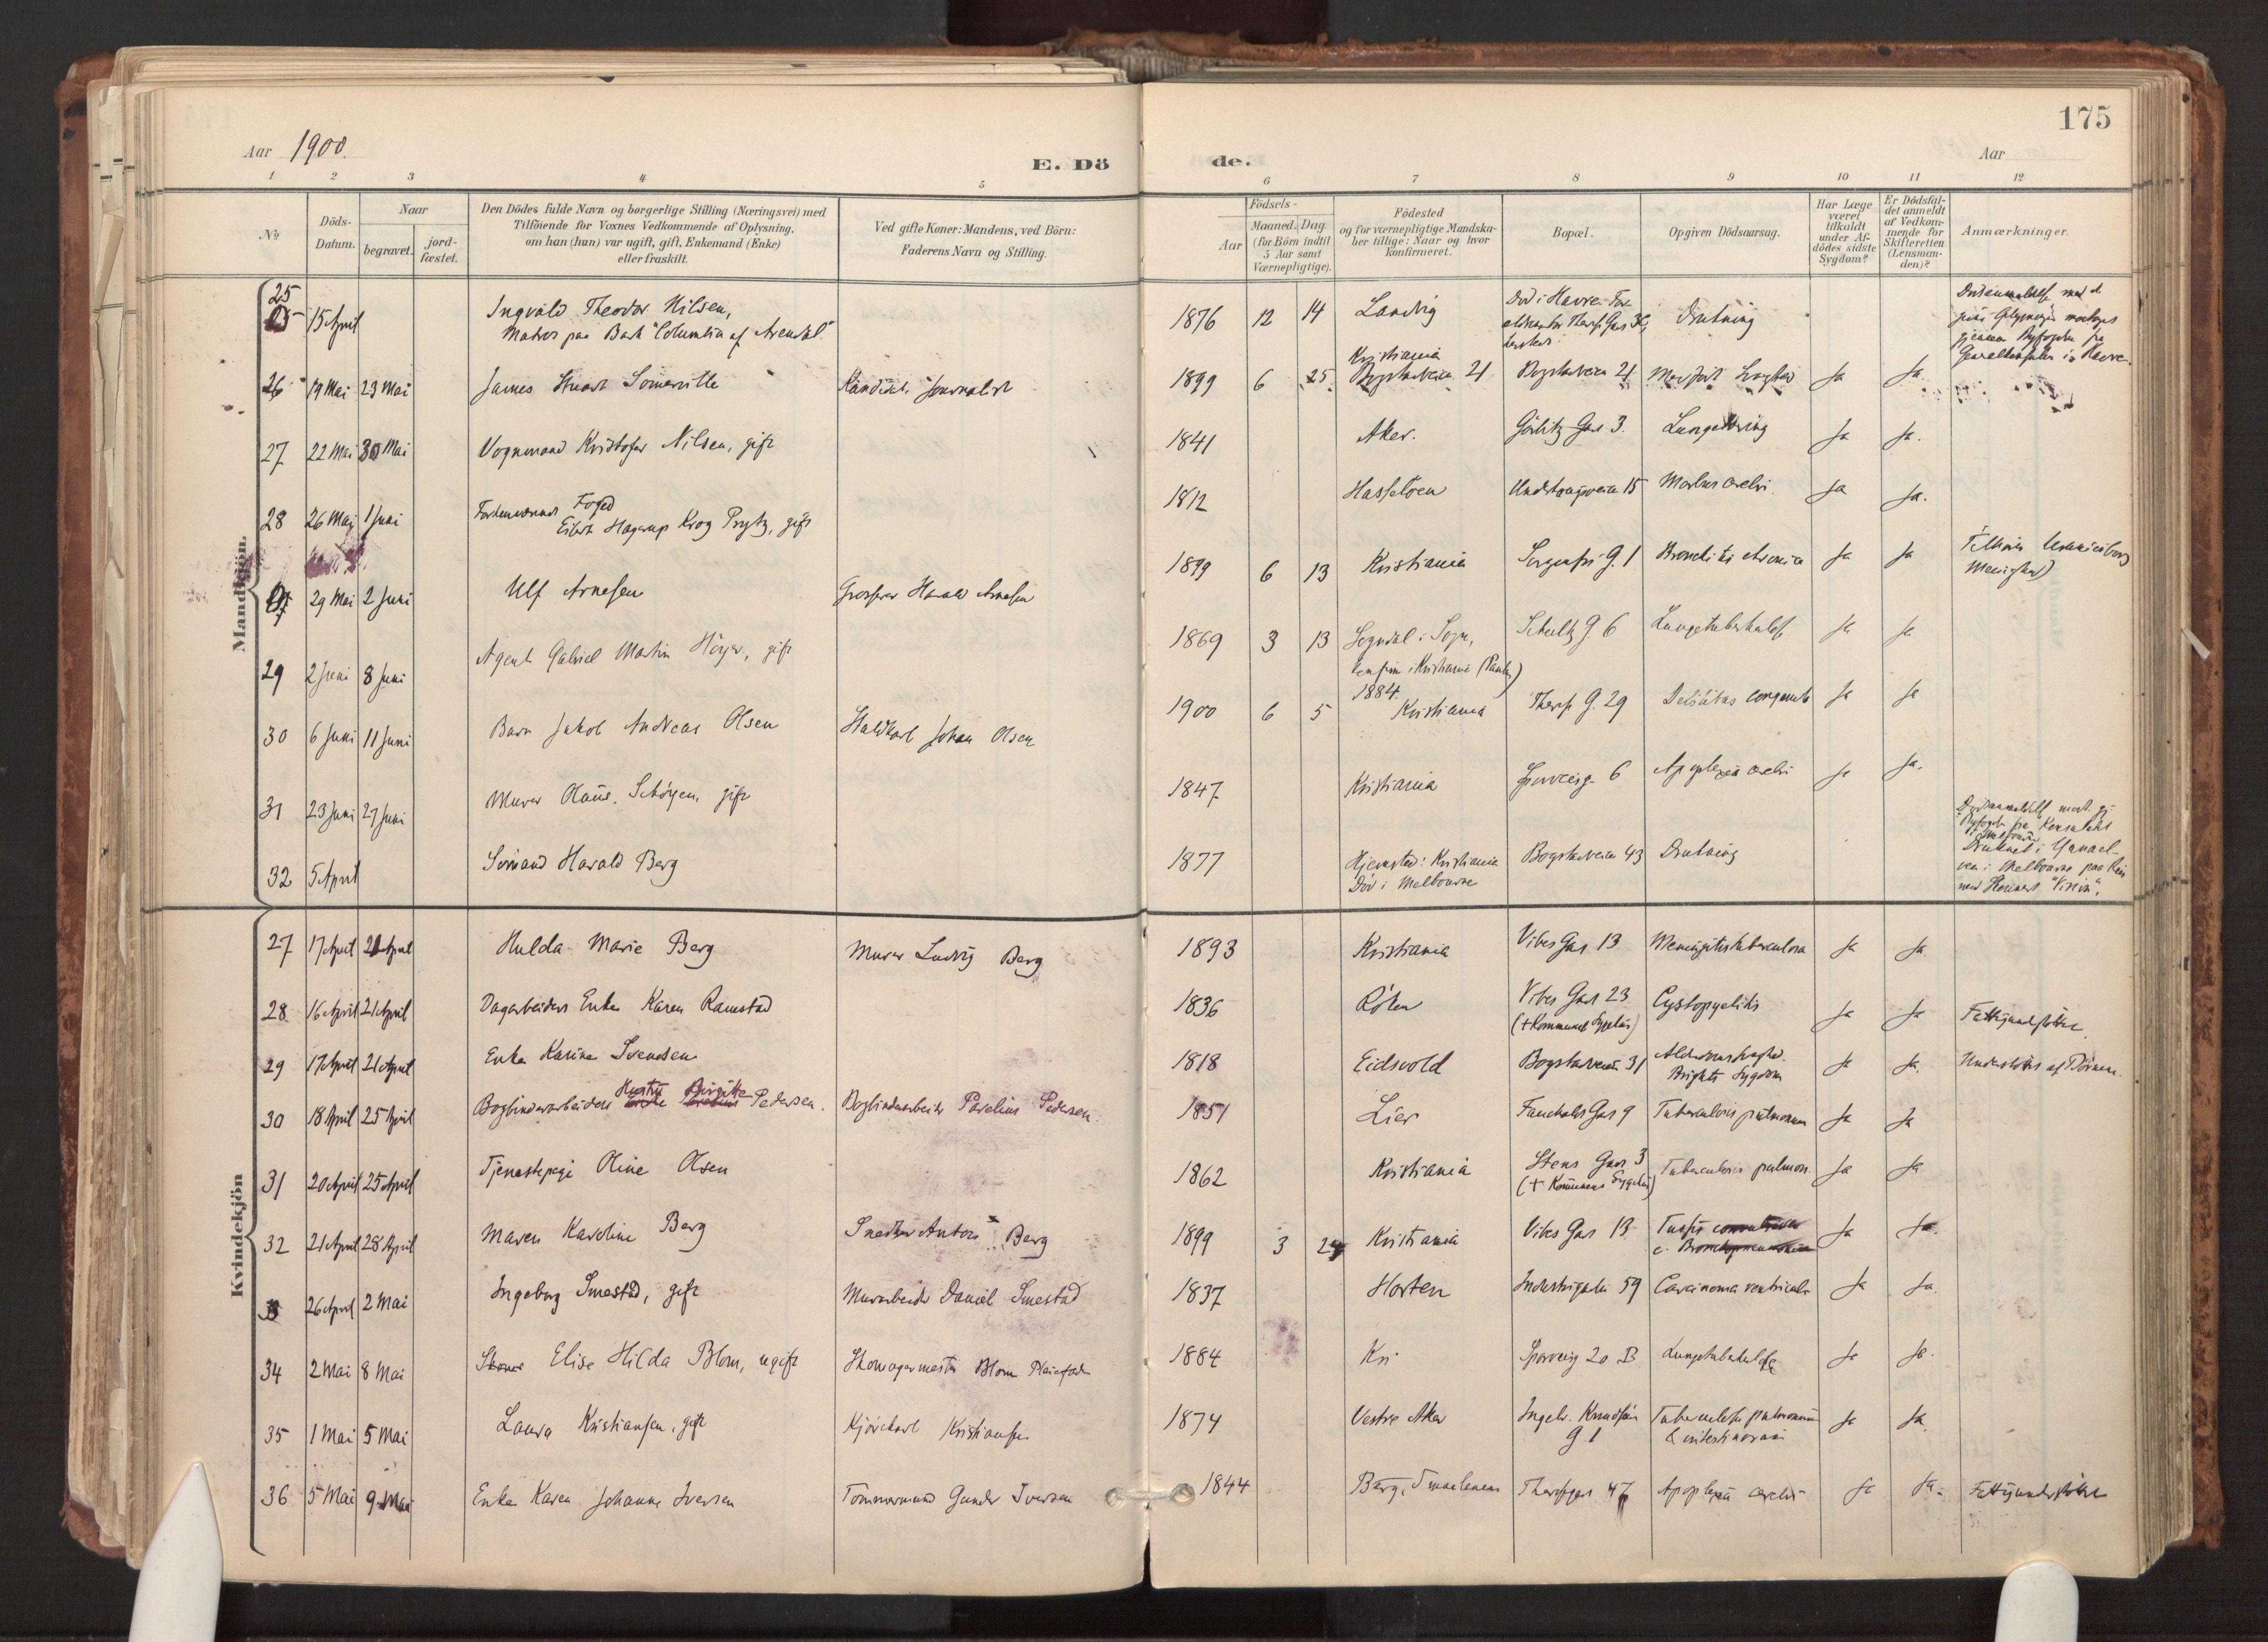 175
Aar 1900.
E. Dö de.
Aar
1 2 3 4 5 6 7 8 9 10 11 12
No
Döds-Datum.
Naar
begravet.
jord-fæstet.
Den Dödes fulde Navn og borgerlige Stilling (Næringsvei) med
Tilföiende for Voxnes Vedkommende af Oplysning,
om han (hun) var ugift, gift, Enkemand (Enke)
eller fraskilt.
Ved gifte Koner: Mandens, ved Börn:
Faderens Navn og Stilling.
Födsels-
Aar
Maaned. Dag
(for Börn indtil
5 Aar samt
Værnepligtige).
Födested
og for værnepligtige Mandska-
ber tillige: Naar og hvor
konfirmeret.
Bopæl.
Opgiven Dödsaarsag.
Har Læge
været
tilkaldt
under Af-
dödes sidste
Sygdom?
Er Dödsfal-
det anmeldt
af Vedkom-
mende for
Skifteretten
(Lensman-
den)?
Anmærkninger.
Mandkjön.
25 15 April Ingvald Theodor Nilsen, 1876 12 14 Landvig Drukning
Matros paa Bark "Columbia af Arendal."
26 19 Mai 23 Mai James Stuart Somerville Journalist 1899 6 25 Kristiania Bogstadveien 21 Bogstadveien 21 Ja Ja
27 22 Mai 30 Mai Vognmand Kristofer Nilsen, gift 1841 Aker. Görbitz Gas 3. Ja Ja.
28 26 Mai 1 Juni Foged
Eilert Hagerup Krog Prytz, gift 1812 Hasseløen 15 Morbus cordis Ja Ja.
29 Mai 2 Juni Ulf Arnesen Grosserer Harald Arnesen 1899 6 13 Kristiania Sorgenfri G. 1 Bronchitis chronica Ja Ja
29 2 Juni 8 Juni Agent Gabriel Martin Höyer, gift 1869 3 13 Sogndal i Sogn, Schultz G 6 Lungetuberkulose Ja Ja
1884.
30 6 Juni 11 Juni Barn Jakob Andreas Olsen Staldkarl Johan Olsen 1900 6 5 Kristiania Theres G. 29 Debilitas congenita Ja Ja
31 23 Juni 27 Juni Murer Olaus Schöyen, gift 1847 Kristiania Sporveisg. 6 Apoplexia cerebri Ja Ja.
32 5 April Sömand Harald Berg 1877 Hjemsted: Kristiania Bogstadveien 43 Drukning
Död i Melbourne
Kvindekjön
27 17 April 21 April Hulda Marie Berg Murer Ludvig Berg 1893 Kristiania Vibes Gas 13 Meningitis tuberculosa Ja Ja.
28 16 April 21 April Dagarbeiders Enke Karen Ramstad 1836 Röken Vibes Gas 23 Cystopyelitis Ja Ja Fattigunderstöttet
(+ Kommunens Sygehus)
29 17 April 21 April Enke Karine Svendsen 1818 Eidsvold Bogstadveien 31 Alderdomssvaghed. Ja Ja. Understöttes af Börnene.
Brights Sygdom
30 18 April 25 April Bogbinderarbeiders Hustru Birgitte Pedersen. Bogbinderarbeider Parelius Pedersen. 1851 Lier Fauchalds Gas 9 Tuberculosis pulmonum Ja Ja
31 20 April 25 April Tjenestepige Oline Olsen 1862 Kristiania Stens Gas 3 Tuberculosis pulmon. Ja Ja
(+ Kommunens Sygehus)
32 21 April 28 April Maren Karoline Berg Snedker Anton Berg 1899 3 24 Kristiania Vibes Gas 13 Tussis convulsiva Ja Ja.
c. Bronchopneumonia
33 26 April 2 Mai Ingeborg Smestad, gift Murarbeider Daniel Smestad 1837 Horten Industrigaden 59 Carcinoma ventriculi Ja Ja.
34 2 Mai 8 Mai Elise Hilda Blom, ugift Skomagermester Blom 1884 Kri Sporveisg 20 B Lungetuberkulose Ja Ja.
35 1 Mai 5 Mai Laura Kristiansen, gift Kjörekarl Kristiansen 1874 Vestre Aker Ingeb. Knudsöns G. 1 Tuberculosis pulmonum Ja Ja.
& intestinorum
36 5 Mai 9 Mai Enke Karen Johanne Iversen Tömmermand Gunder Iversen 1844 Berg, Smaalenene Theresgas 47 Apoplexia cerebri Ja Ja. Fattigunderstöttet